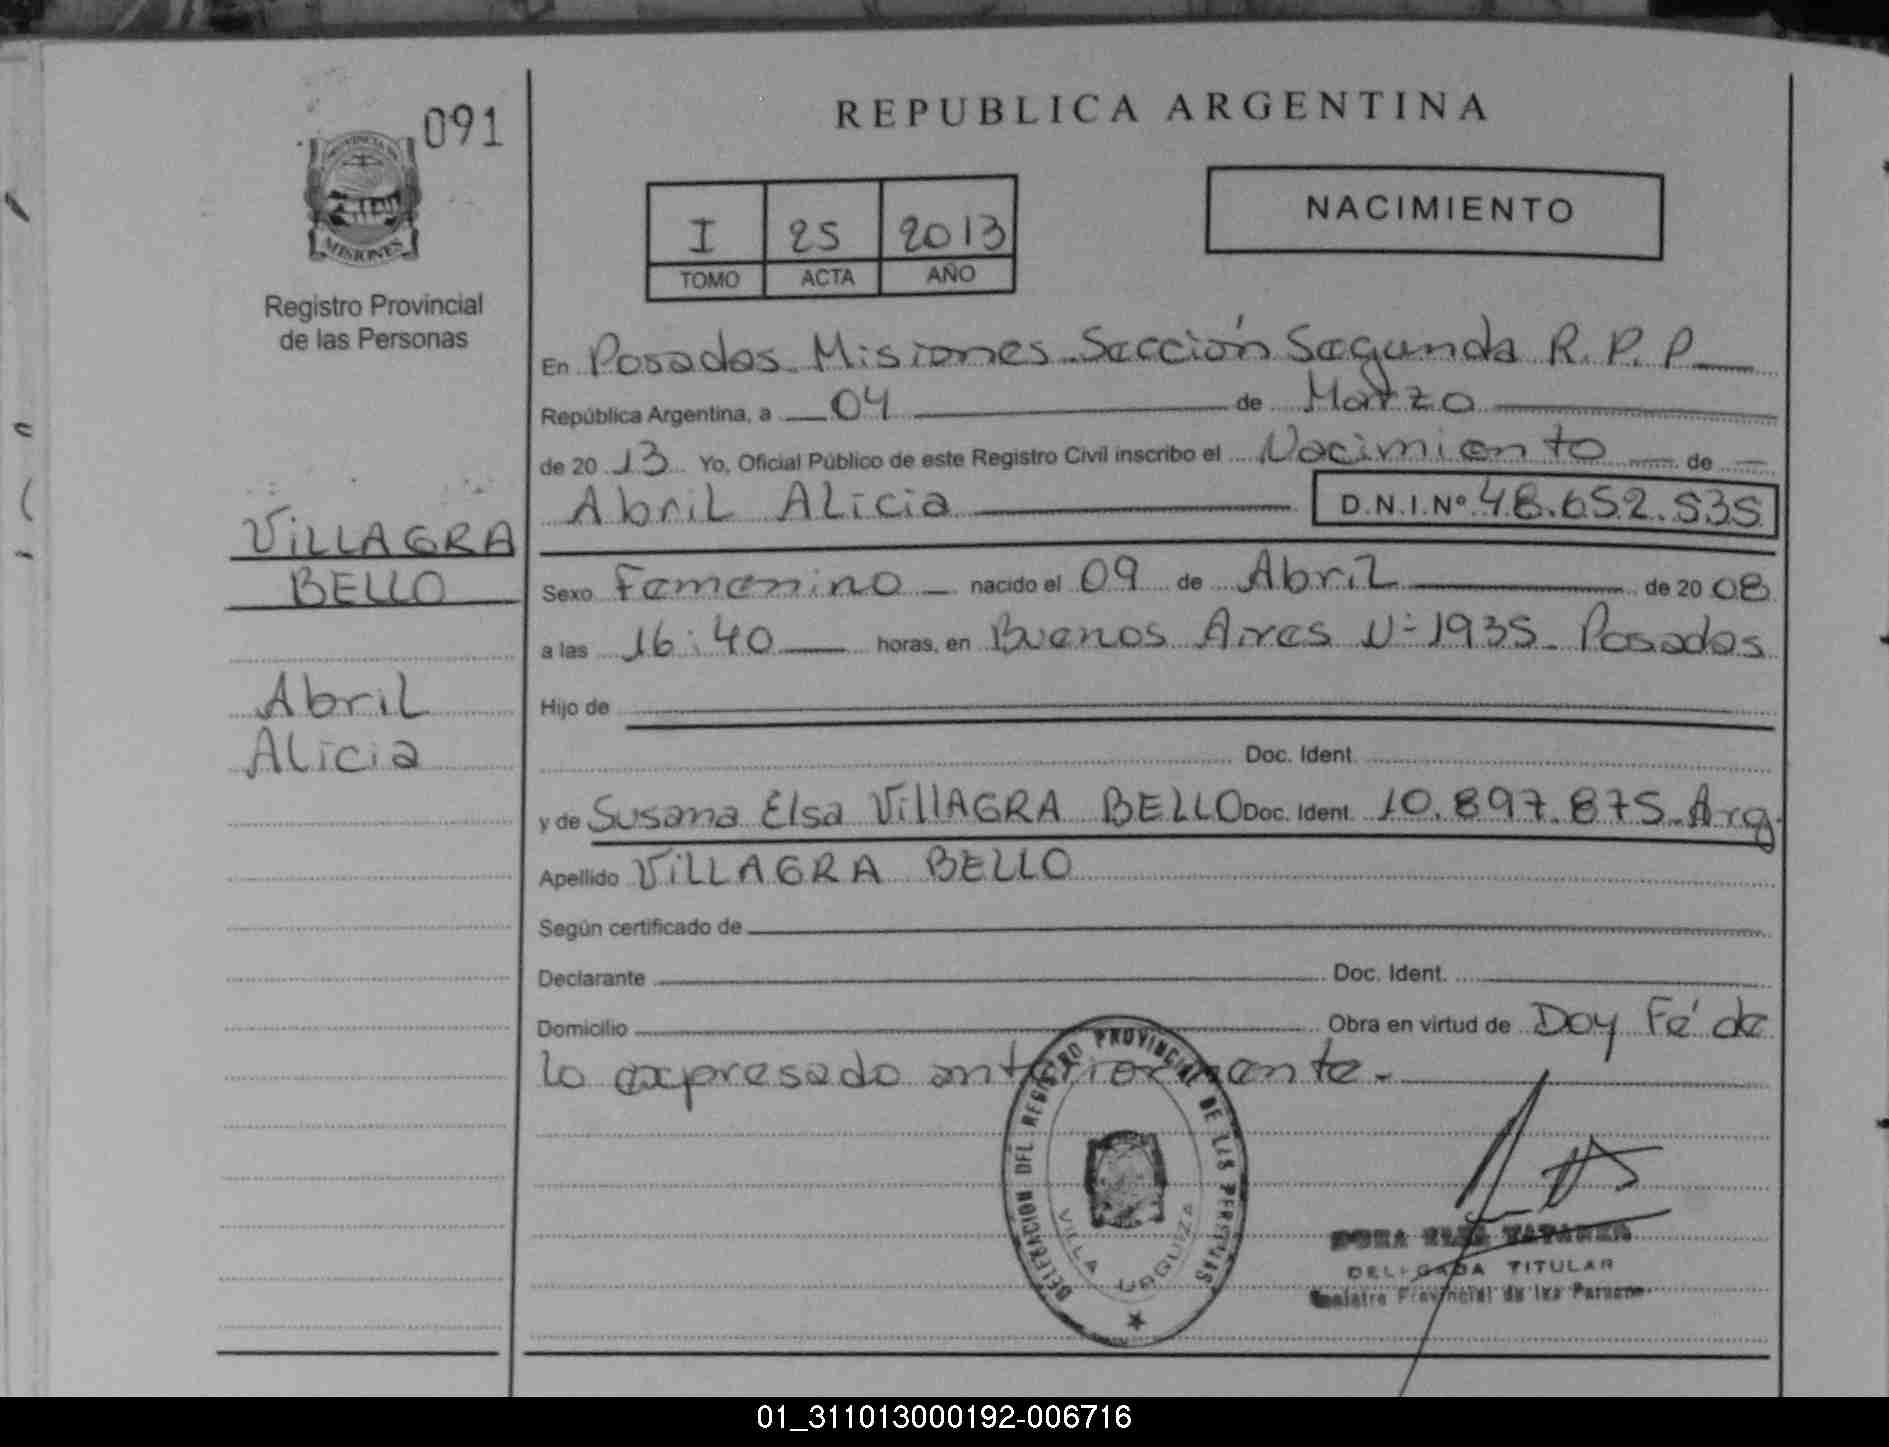 091
PROVINCIA DE
MISIONES
Registro Provincial
de las Personas
VILLAGRA
BELLO
Abril
Alicia
REPUBLICA ARGENTINA
I 25 2013
TOMO ACTA AÑO
NACIMIENTO
En Posadas Misiones Sección Segunda R.P.P
República Argentina, a 04 de Marzo
de 20 13 Yo, Oficial Público de este Registro Civil inscribo el Nacimiento de
Abril Alicia D.N.I.Nº 48.652.535
Sexo Femenino nacido el 09 de Abril de 20 08
a las 16:40 horas, en Buenos Aires Nº 1935. Posadas
Hijo de
Doc. Ident.
y de Susana Elsa VillAGRA BELLO Doc. Ident. 10.897.875 Arg.
Apellido VILLAGRA BELLO
Según certificado de
Declarante Doc. Ident.
Domicilio Obra en virtud de Doy Fé de
lo expresado anteriormente.
DELEGACION DEL REGISTRO PROVINCIAL DE LAS PERSONAS
VILLA URQUIZA
DELEGADA TITULAR
Registro Provincial de las Personas
01_311013000192-006716